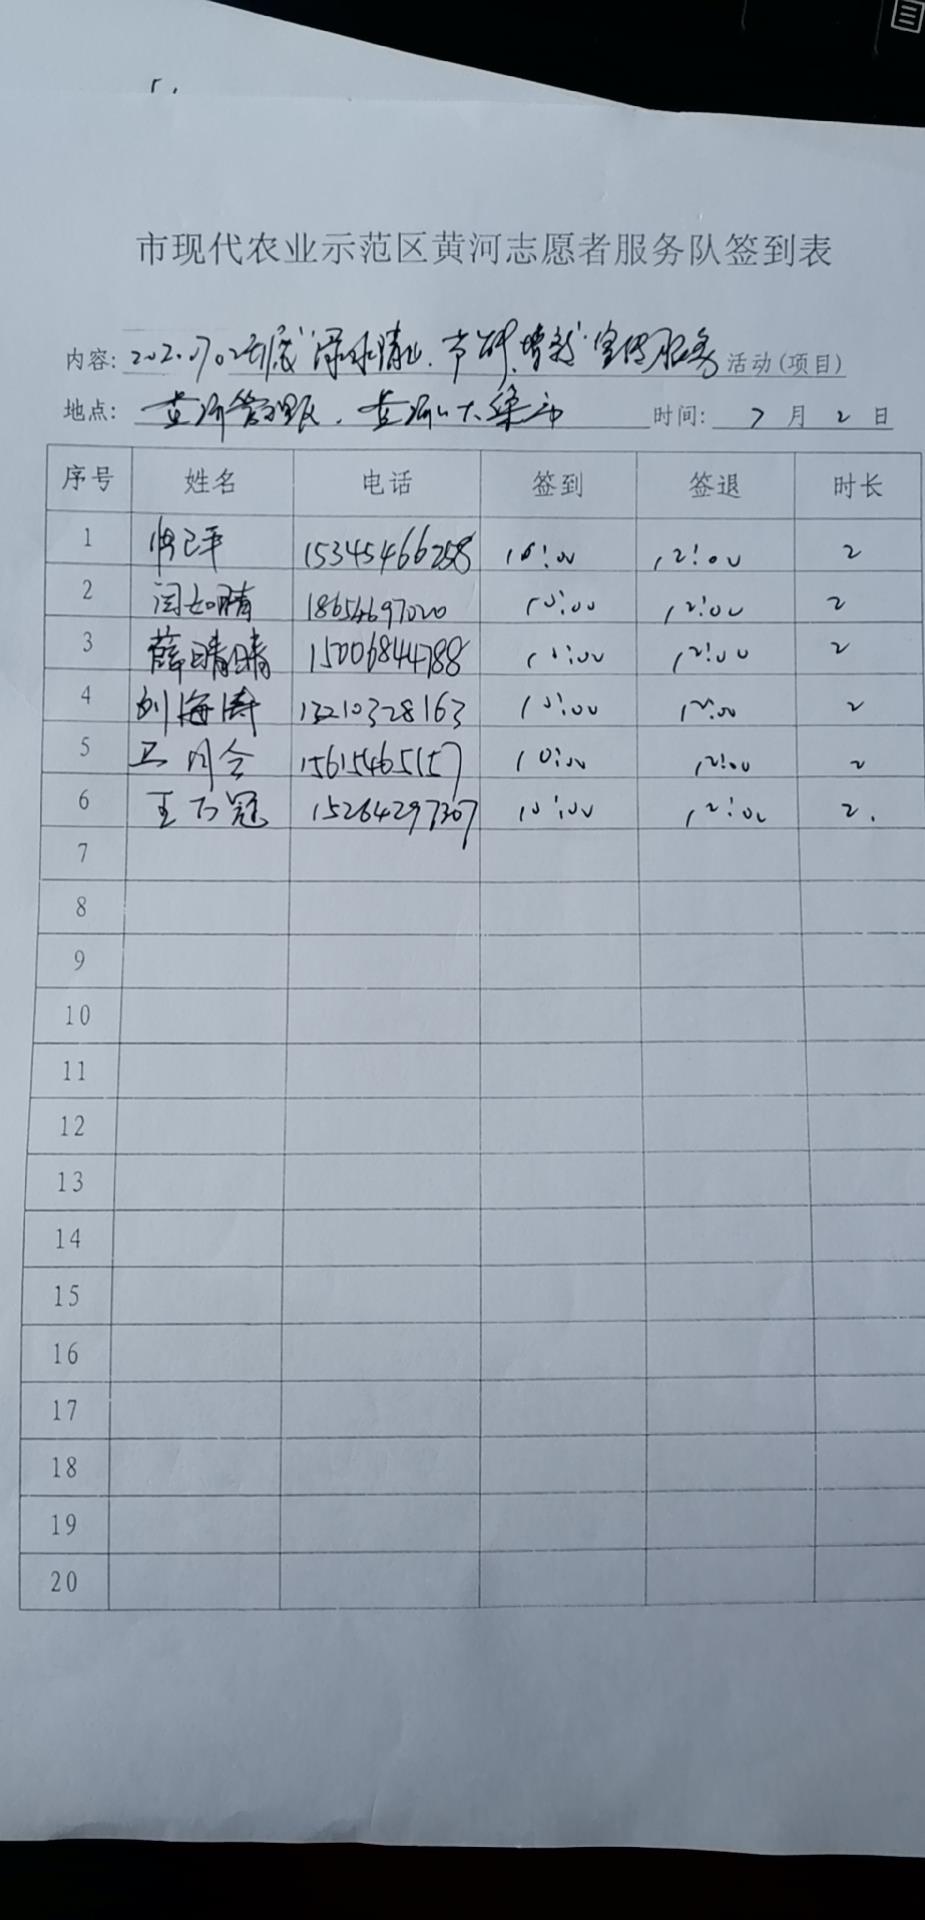 市现代农业示范区黄河志愿者服务队签到表
内容: 活动(项目)
地点: 时间: 7 月 2 日
序号 姓名 电话 签到 签退 时长
1 15345466258 10:00 12:00 2
2 闫如晴 18654697020 10:00 12:00 2
3 薛晴晴 15006844788 10:00 12:00 2
4 刘海涛 13210328163 10:00 12:00 2
5 15615465157 10:00 12:00 2
6 王 冠 15264297307 10:00 12:00 2.
7
8
9
10
11
12
13
14
15
16
17
18
19
20